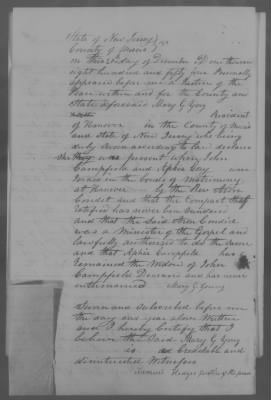 State of New Jersey }
County of Morris } ss
On this day of December One thousand
eight hundred and fifty four Personally
appeared before me a Justice of the
Peace within and for the County and
State aforesaid Mary G Young
Resident
of Hanover in the County of Morris
and State of New Jersey who being
duly Sworn according to law declare
that was present when John
Campfield and Aphia Gay were
in the bonds of matrimony
at Hanover by the Rev Aron
Condet and that the Compact
has never been
and that the Said Aron Condit
was a Minister of the Gospel and
Lawfully authorized to do the same
and that Aphia Campfield has
remained the Widow of John
Campfield Deceased and has never
intermarried Mary G Young
Sworn and Subscribed before me
the day and year above Written
and I hereby Certify that I
believe the Said Mary G Young
is a Credible and
disinterested Witness
Justice of the peace